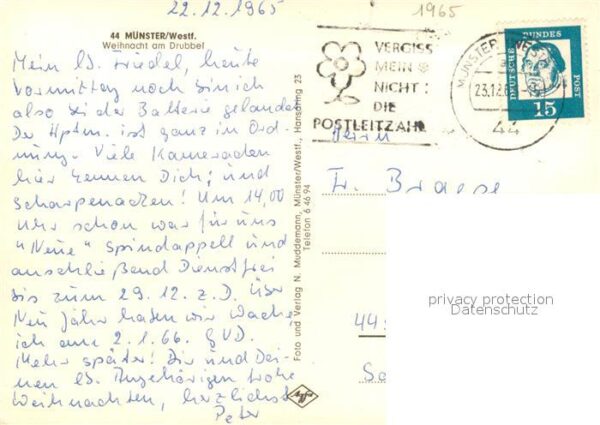 22.12.1965
1965
44 MÜNSTER/Westf.
Weihnacht am Drubbel
Mein lb. Friedel, heute
Vormittag noch bin ich
also bei der Batterie gelandet.
Der Hptm. ist ganz in Ord-
nung. Viele Kameraden
hier kennen Dich; und
Scharpenacken! Um 14,00
Uhr schon war für uns
"Neue" Spindappell und
anschließend Dienstfrei
bis zum 29.12. z.D. Über
Neu Jahr haben wir Wache,
ich am 2.1.66. GVD.
Mehr später! Dir und Dei-
nen lb. Angehörigen frohe
Weihnachten, herzlichst
Peter
Foto und Verlag N. Muddemann, Münster/Westf., Hansaring 23
Telefon 6 46 94
Agfa
VERGISS
MEIN
NICHT:
DIE
POSTLEITZAHL
MÜNSTER (WESTF)
23.12.
44
DEUTSCHE BUNDESPOST
15
Herrn
Fr. Braese
44
privacy protection
Datenschutz